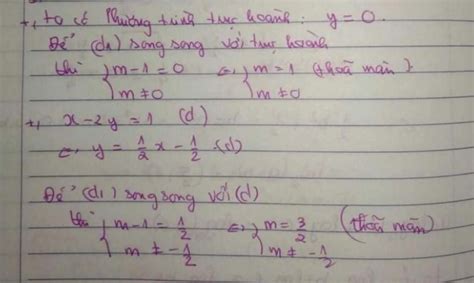 +, Ta có Phương trình trục hoành: y = 0.
Để (d₁) song song với trục hoành
thì { m - 1 = 0 ⇔ { m = 1 (thoả mãn)
m ≠ 0 m ≠ 0
+, x - 2y = 1 (d)
⇔ y = 1/2 x - 1/2 (d)
Để (d₁) song song với (d)
thì { m - 1 = 1/2 ⇔ { m = 3/2 (thoã mãn)
m ≠ -1/2 m ≠ -1/2